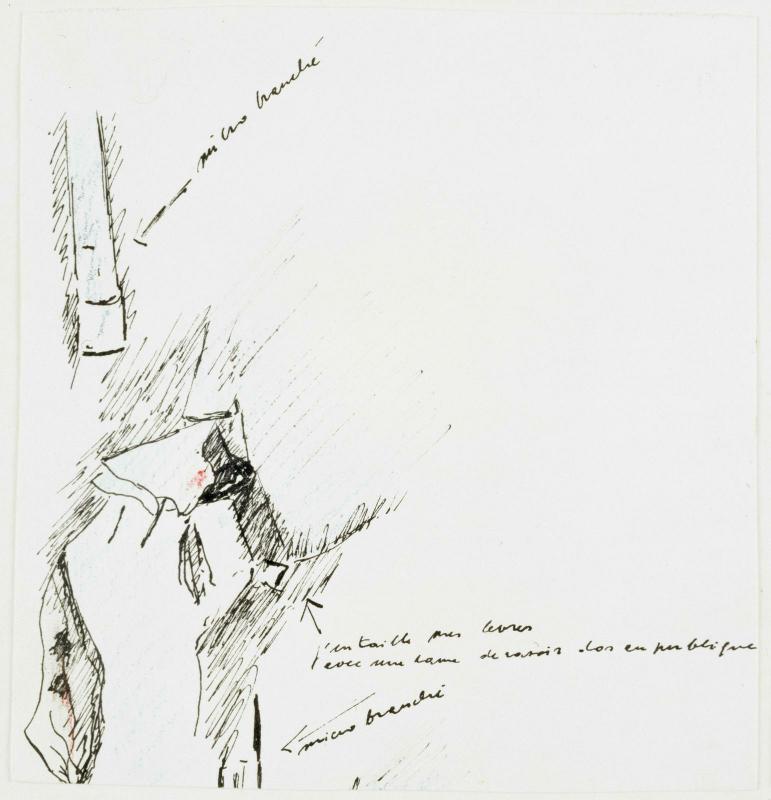 micro branché
j'entaille mes levres
avec une lame de rasoir dos en publique
micro branché